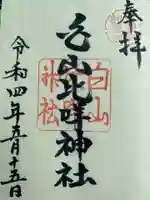 奉拝
白山比咩神社
白山
神社
令和四年五月十五日